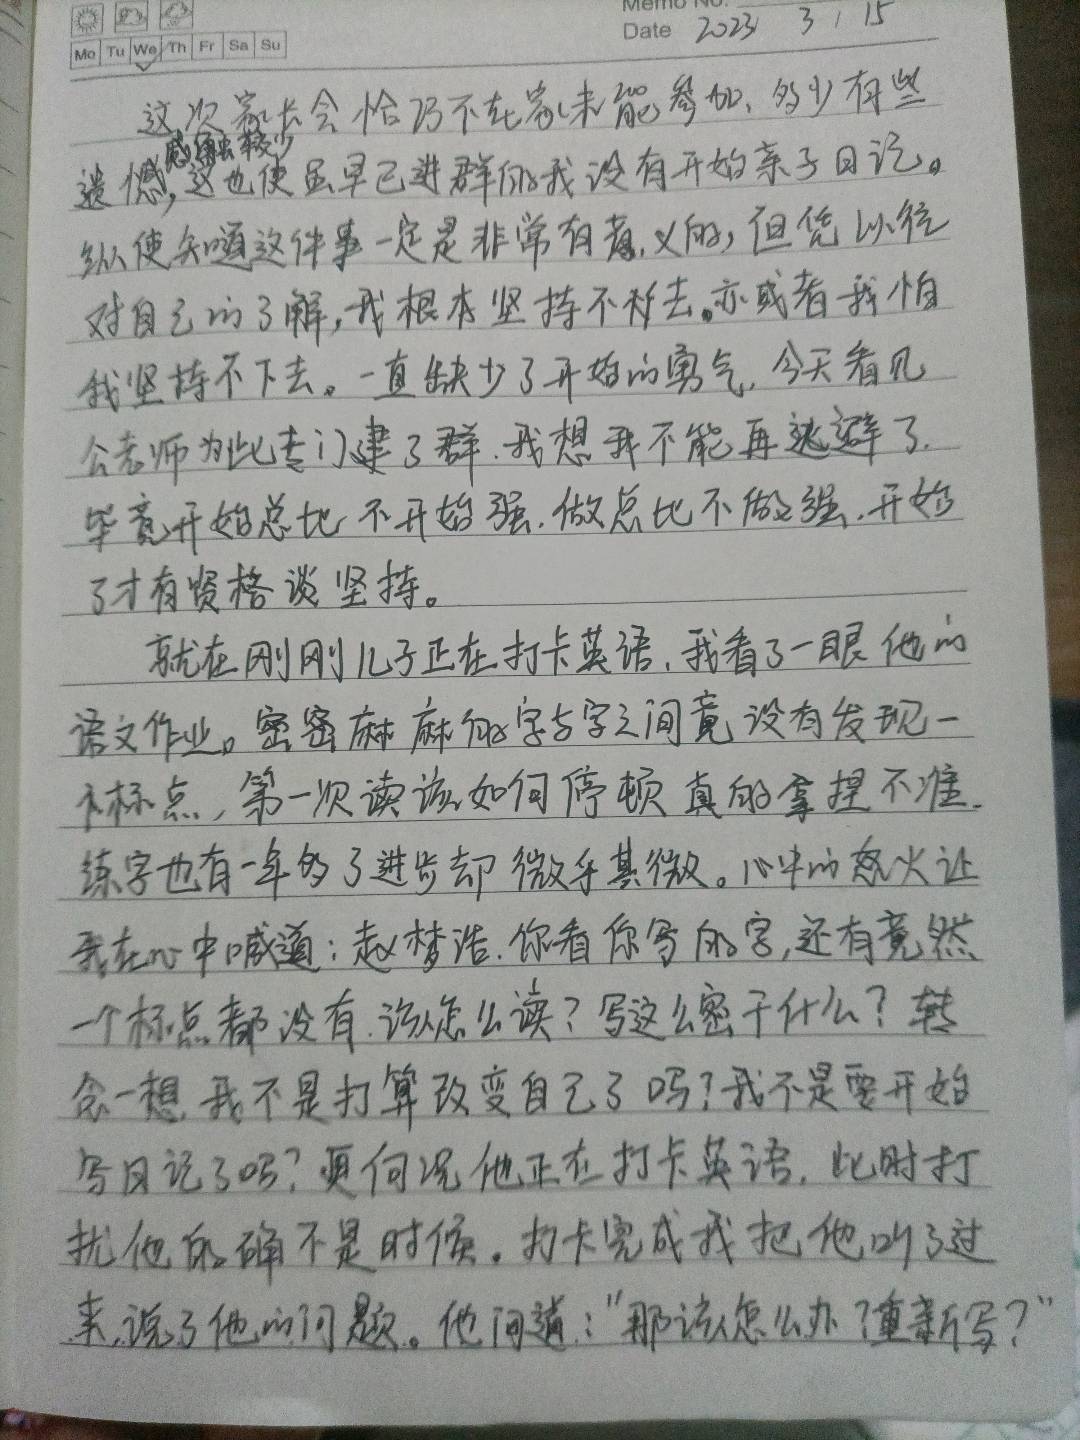 Memo No.
Mo Tu We Th Fr Sa Su
Date 2023 / 3 / 15
这次家长会恰巧不在家未能参加、多少有些
感触较少
遗憾，这也使虽早已进群的我没有开始亲子日记。
纵使知道这件事一定是非常有意义的，但凭以往
对自己的了解，我根本坚持不下去。亦或者我怕
我坚持不下去。一直缺少了开始的勇气，今天看见
公老师为此专门建了群，我想我不能再逃避了，
毕竟开始总比不开始强，做总比不做强，开始
了才有资格谈坚持。
就在刚刚儿子正在打卡英语，我看了一眼他的
语文作业。密密麻麻的字与字之间竟没有发现一
个标点，第一次读该如何停顿真的拿捏不准，
练字也有一年多了进步却微乎其微。心中的怒火让
我在心中喊道：赵梦浩，你看你写的字，还有竟然
一个标点都没有，该怎么读？写这么密干什么？转
念一想，我不是打算改变自己了吗？我不是要开始
写日记了吗？更何况他正在打卡英语，此时打
扰他的确不是时候。打卡完成我把他叫了过
来，说了他的问题。他问道：“那该怎么办？重新写？”